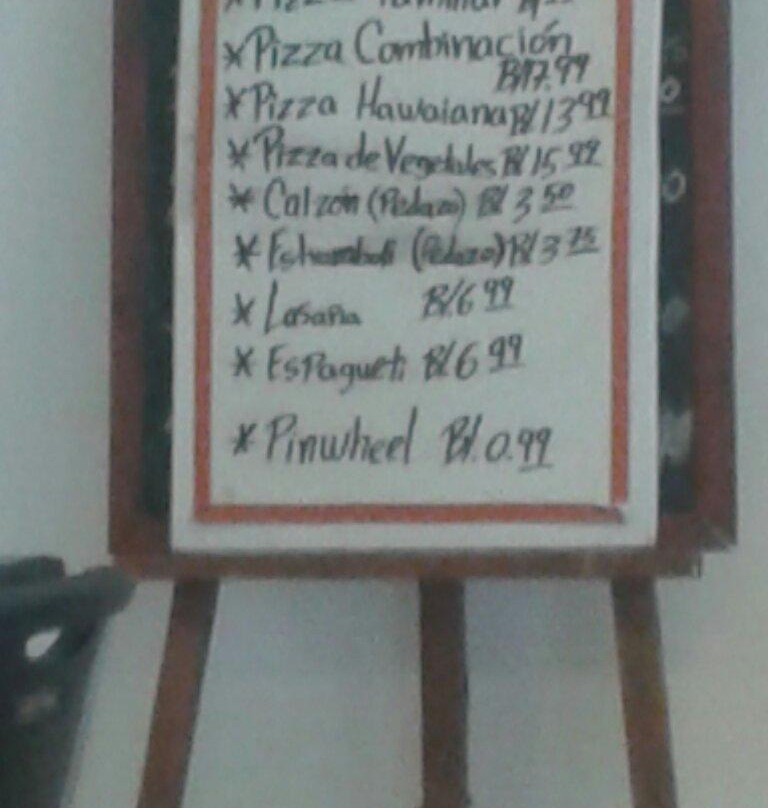 * Pizza Combinación
B/17.99
* Pizza Hawaiana B/13 99
* Pizza de Vegetales B/15 99
* Calzón (Pedazo) B/ 3 50
* (Pedazo) B/3 75
* Lasaña B/6 99
* Espagueti B/6 99
* Pinwheel B/. 0.99